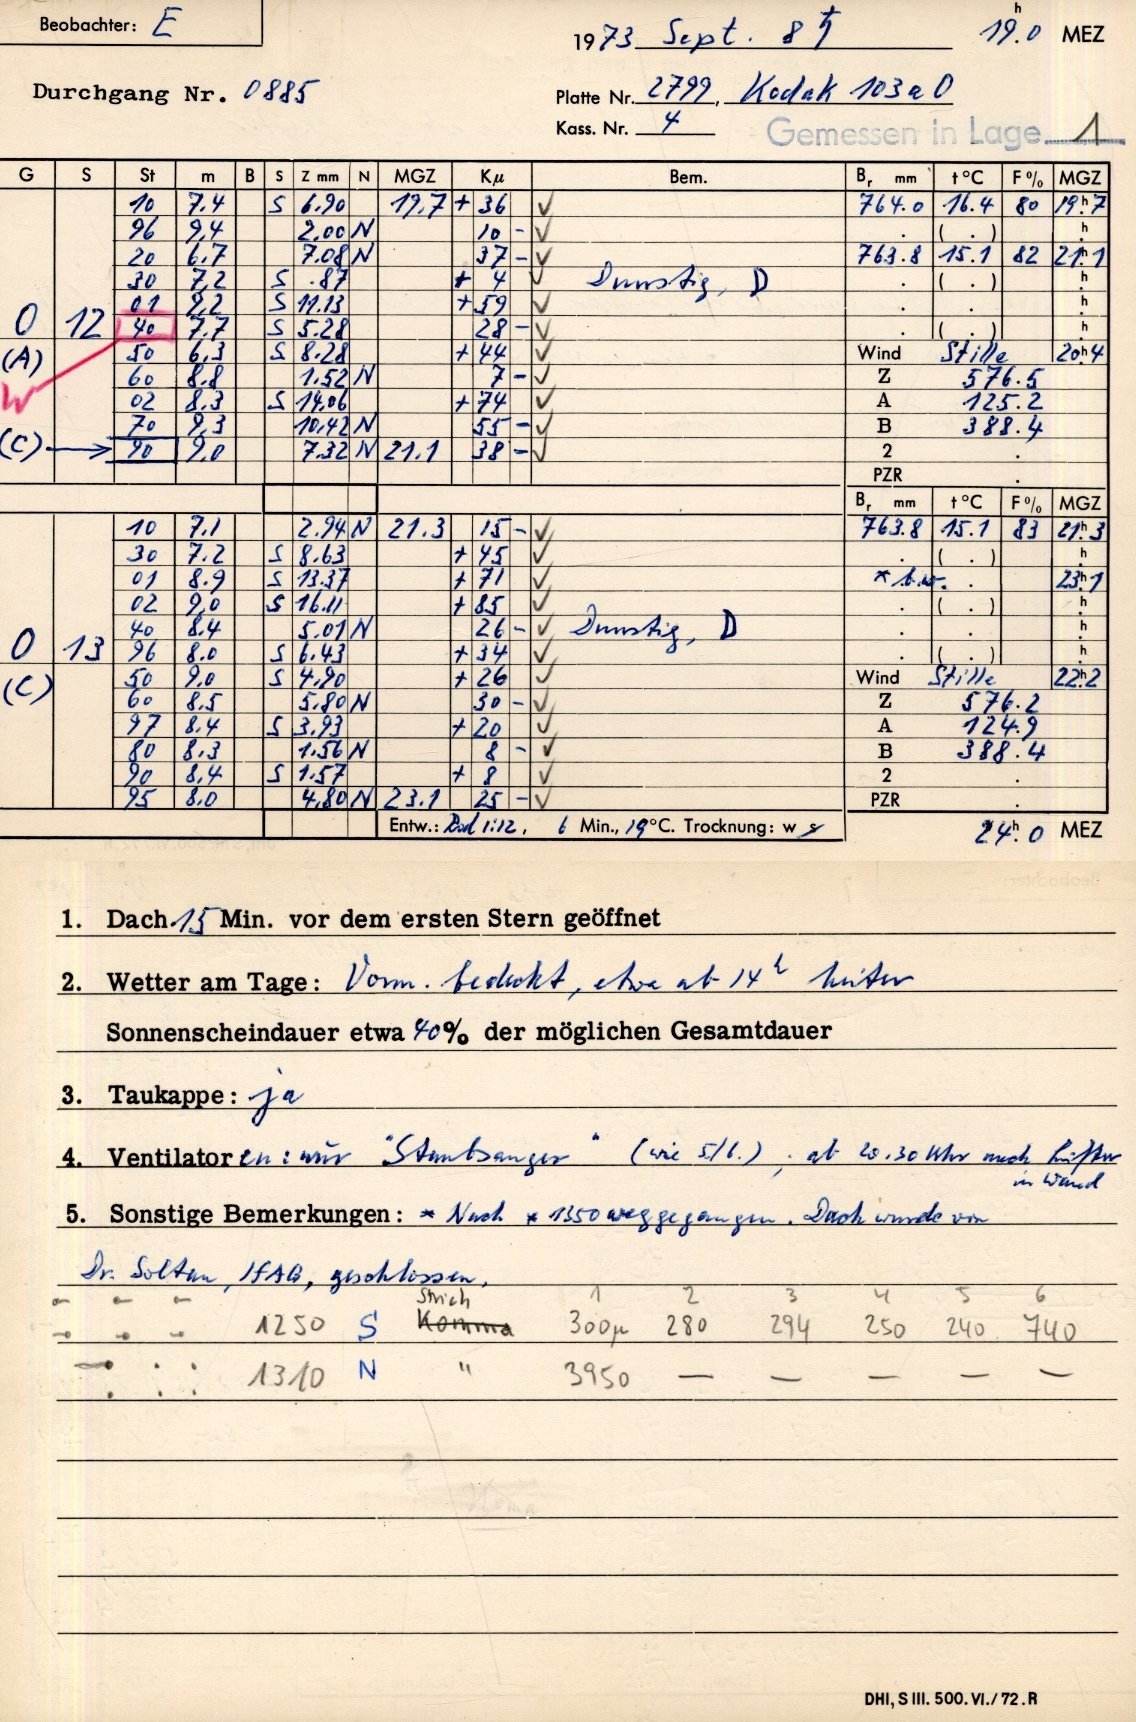 Beobachter: E
1973 Sept. 8 ♄ 19h.0 MEZ
Durchgang Nr. 0885
Platte Nr. 2799, Kodak 103aO
Kass. Nr. 4
Gemessen in Lage 1
G S St m B S Z mm N MGZ Kμ Bem. Br mm t°C F% MGZ
10 7.4 S 6.90 19.7 + 36 ✓ 764.0 16.4 80 19h.7
96 9.4 2.00 N 10 - ✓ . ( . ) h.
20 6.7 7.08 N 37 - ✓ 763.8 15.1 82 21h.1
30 7.2 S .87 + 4 ✓ Dunstig, D . ( . ) h.
01 9.2 S 11.13 + 59 ✓ . . h.
0 12 40 7.7 S 5.28 28 - ✓ . ( . ) h.
(A) 50 6.3 S 8.28 + 44 ✓ Wind Stille 20h.4
60 8.8 1.52 N 7 - ✓ Z 576.5
W 02 8.3 S 14.06 + 74 ✓ A 125.2
70 9.3 10.42 N 55 - ✓ B 388.4
(C) → 90 9.0 7.32 N 21.1 38 - ✓ 2 .
PZR .
Br mm t°C F% MGZ
10 7.1 2.94 N 21.3 15 - ✓ 763.8 15.1 83 21h.3
30 7.2 S 8.63 + 45 ✓ . ( . ) h.
01 8.9 S 13.37 + 71 ✓ * b.w. . 23h.1
02 9.0 S 16.11 + 85 ✓ . ( . ) h.
40 8.4 5.01 N 26 - ✓ Dunstig, D . . h.
0 13 96 8.0 S 6.43 + 34 ✓ . ( . ) h.
(C) 50 9.0 S 4.90 + 26 ✓ Wind Stille 22h.2
60 8.5 5.80 N 30 - ✓ Z 576.2
97 8.4 S 3.93 + 20 ✓ A 124.9
80 8.3 1.56 N 8 - ✓ B 388.4
90 8.4 S 1.57 + 8 ✓ 2 .
95 8.0 4.80 N 23.1 25 - ✓ PZR .
Entw.: Rod 1:12, 6 Min., 19°C. Trocknung: w s 24h.0 MEZ
1. Dach 15 Min. vor dem ersten Stern geöffnet
2. Wetter am Tage: Vorm. bedeckt, etwa ab 14h heiter
Sonnenscheindauer etwa 40% der möglichen Gesamtdauer
3. Taukappe: ja
4. Ventilatoren: nur "Staubsauger" (wie 5./6.), ab 20.30 Uhr auch Lüfter
in Wand
5. Sonstige Bemerkungen: * Nach * 1350 weggegangen. Dach wurde von
Dr. Soltau, IfAG, geschlossen.
Strich 1 2 3 4 5 6
1250 S Komma 300μ 280 294 250 240 740
1310 N " 3950 — — — — —
DHI, S III. 500. VI./72. R